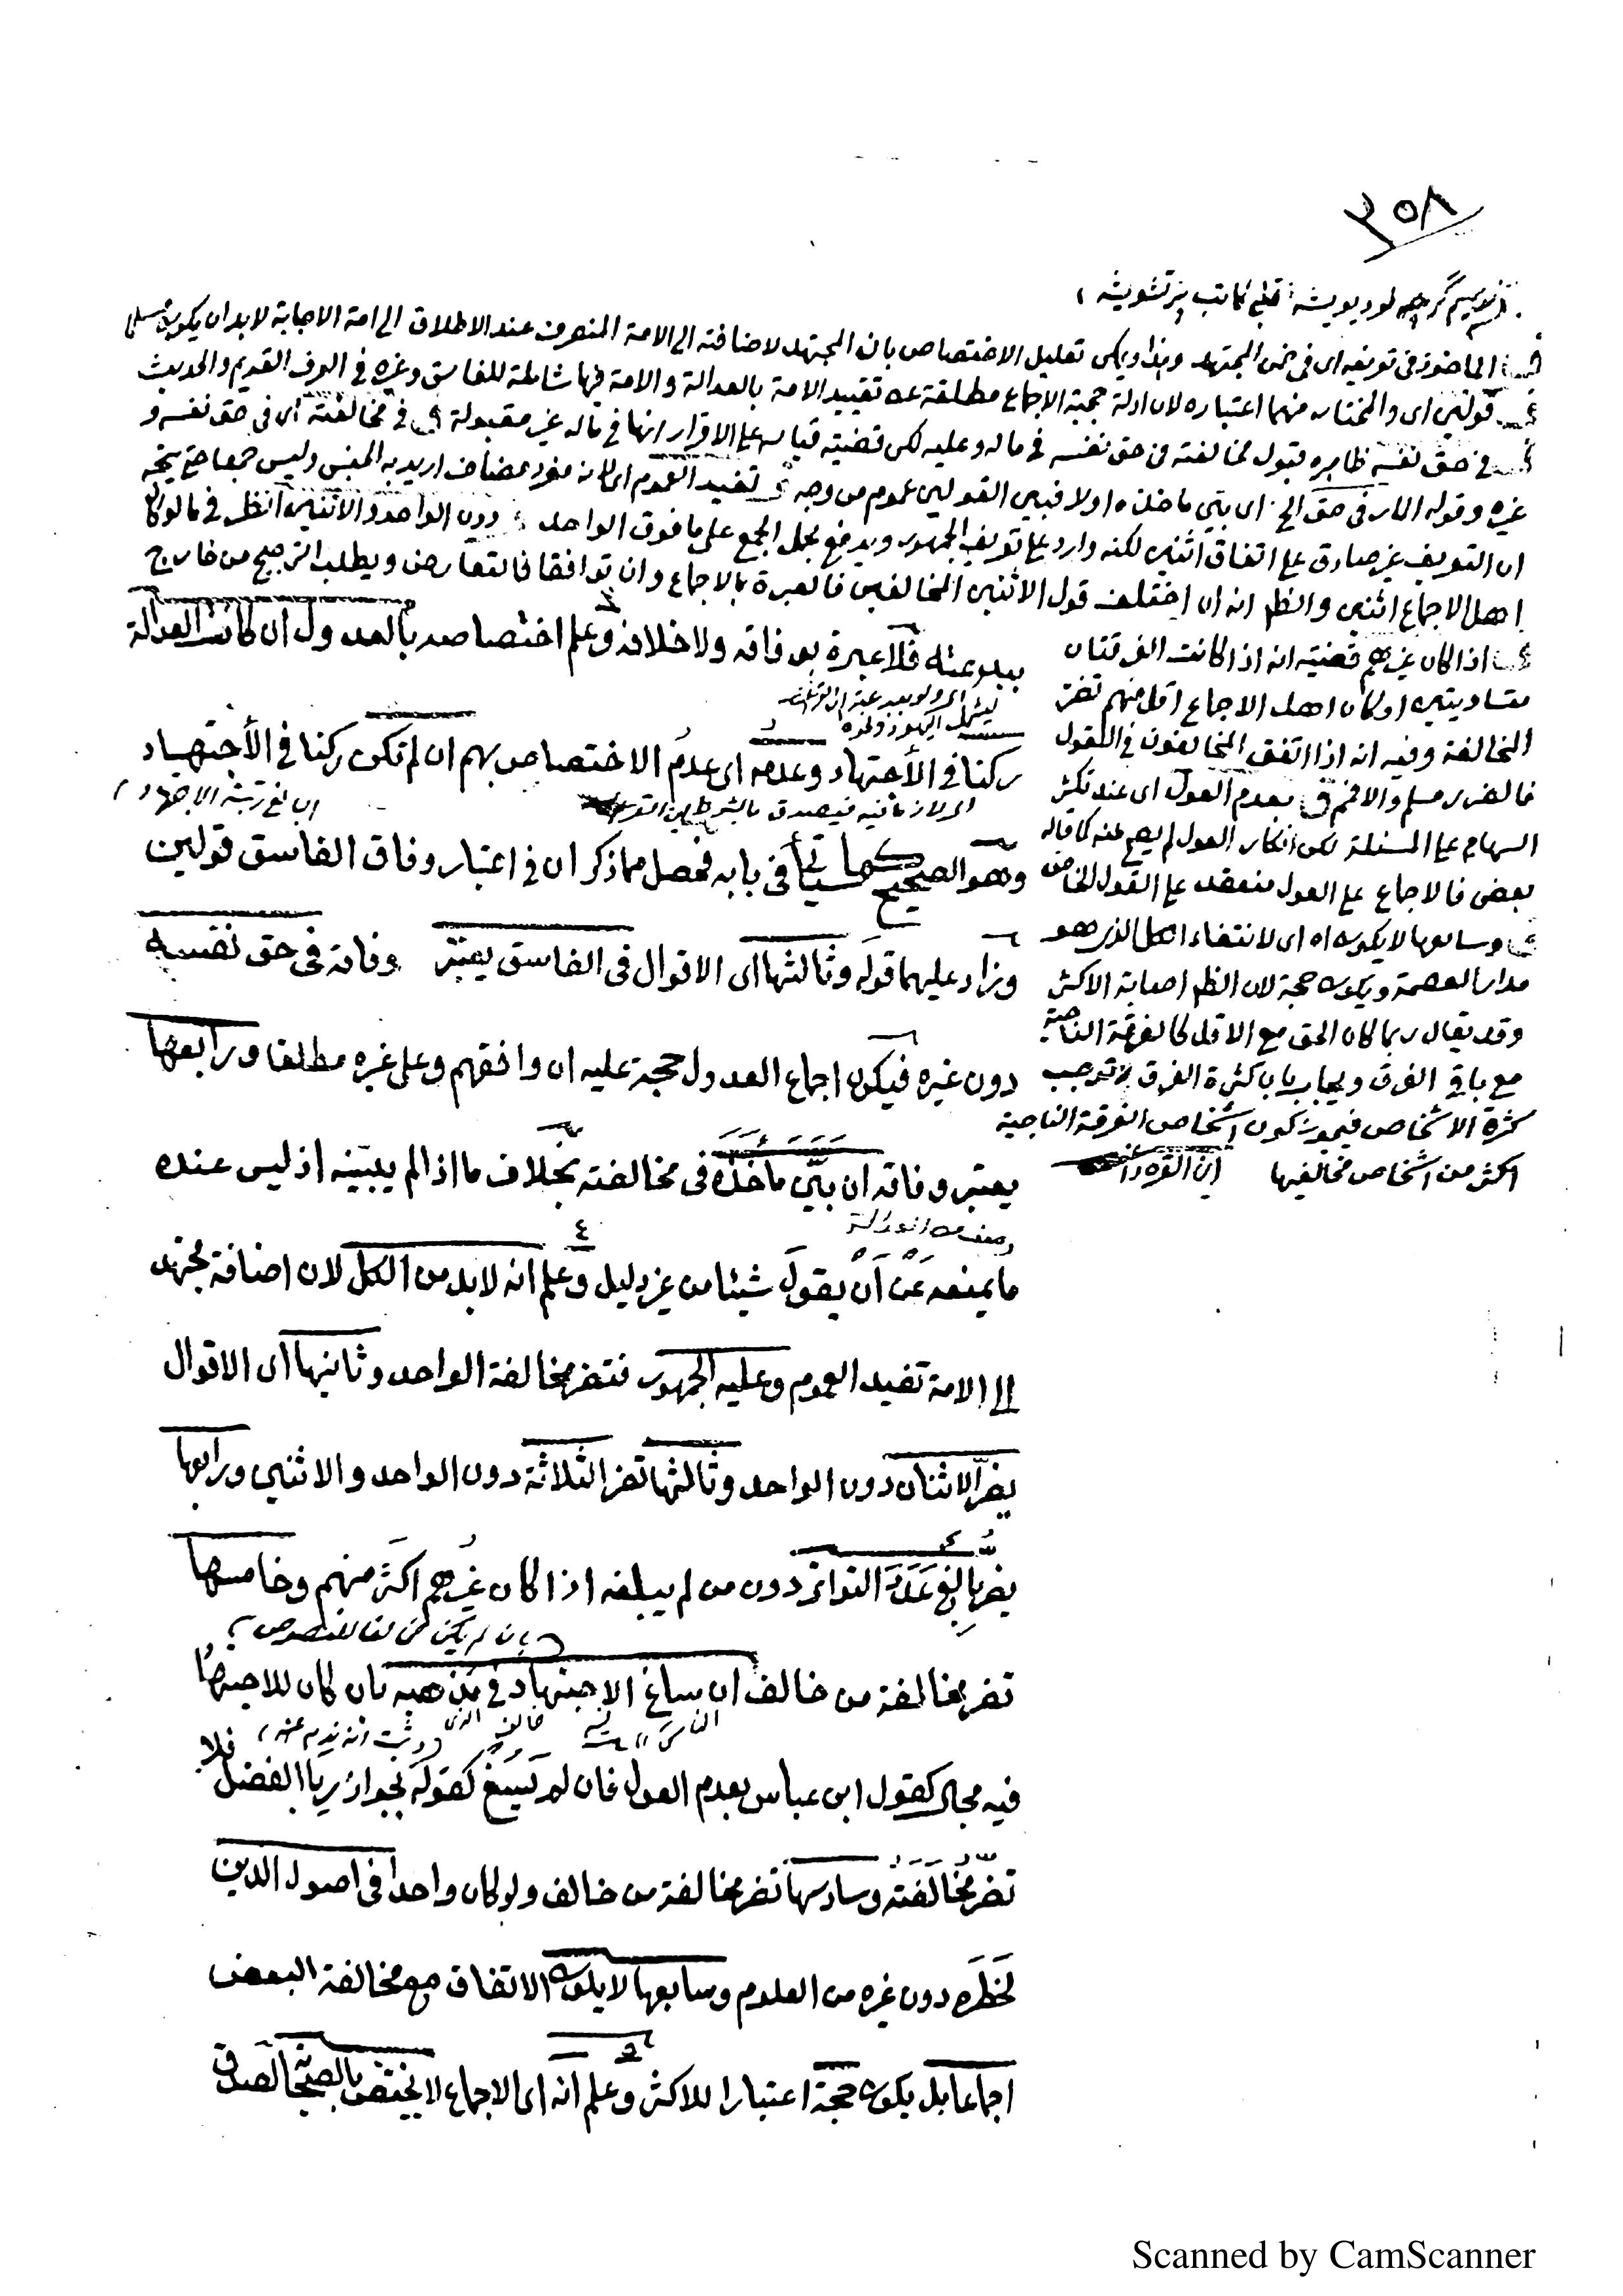 ٣٥٨
المأخوذ فى تعريفه اى فى ضمن المجتهد ويمكن تعليل الاختصاص بان المجتهد لاضافته الى الامة المنصرف عند الاطلاق الى امة الاجابة لابد ان يكون
قولين اى والمختار منهما اعتباره لان ادلة حجية الاجماع مطلقة عن تقييد الامة بالعدالة والامة فيها شاملة للفاسق وغيره فى العرف القديم والحديث
فى حق نفسه ظاهره قبول مخالفته فى حق نفسه فى ماله وعليه لكن قضيته قياسه على الاقرار انها فى ماله غير مقبولة فى مخالفته اى فى حق نفسه و
غيره وقوله المار فى حق الخ اى بيّن مأخذه اولا فبين القولين عموم من وجه تفيد العموم اى لانه مفرد مضاف اريد به الجنس وليس جمعا حتى يتجه
ان التعريف غير صادق على اتفاق اثنين لكنه وارد على تعريف الجمهور ويدفع بحمل الجمع على ما فوق الواحد دون الواحد والاثنين انظر فى ما لو كان
اهل الاجماع اثنين والظ انه ان اختلف قول الاثنين المخالفين فالعبرة بالاجماع وان توافقا فالتعارض ويطلب الترجيح من خارج
اذا كان غيرهم قضيته انه اذا كانت الفرقتان
متساويتين او كان اهل الاجماع اقل منهم تضر
المخالفة وفيه انه اذا اتفق المخالفون فى القول
فالضرر مسلم والا فـ بعدم العول اى عند تكثر
السهام على المسئلة لكن انكار العول لم يصح عنه كما قاله
بعض فالاجماع على العول منعقد على القول الخامس
وسابعها لا يكون اه اى لانتفاء الكل الذى هو
مدار العصمة ويكون حجة لان الظ اصابة الاكثر
وقد يقال ربما كان الحق مع الاقل كالفرقة الناجية
مع باقى الفرق ويجاب بان كثرة الفرق لا توجب
كثرة الاشخاص فيجوز كون اشخاص الفرقة الناجية
اكثر من اشخاص مخالفيها ابن القره داغى
ببدعته فلا عبرة بوفاقه ولا خلافه وعلم اختصاصه بالعدول ان كانت العدالة
ركنا فى الأجتهاد وعدمه اى عدم الاختصاص بهم ان لم تكن ركنا فى الأجتهاد
وهو الصحيح كما سيأتى فى بابه فحصل مما ذكر ان فى اعتبار وفاق الفاسق قولين
وزاد عليهما قوله وثالثها اى الاقوال فى الفاسق يعتبر وفاقه فى حق نفسه
دون غيره فيكون اجماع العدول حجة عليه ان وافقهم وعلى غيره مطلقا ورابعها
يعتبر وفاقه ان بيّن مأخذه فى مخالفته بخلاف ما اذا لم يبيّنه اذ ليس عنده
ما يمنعه عن ان يقول شيئا من غير دليل وعلم انه لابد من الكل لان اضافة مجتهد
الى الامة تفيد العموم وعليه الجمهور فتضر مخالفة الواحد وثانيها اى الاقوال
يضرّ الاثنان دون الواحد وثالثها تضر الثلاثة دون الواحد والاثنين ورابعها
يضر بالغ عدد التواتر دون من لم يبلغه اذا كان غيرهم اكثر منهم وخامسها
بان لم يكن مخالفا للنصوص
تضر مخالفة من خالف ان ساغ الاجتهاد فى مذهبه بان كان للاجتهاد
فيه مجال كقول ابن عباس بعدم العول فان لم يسغ كقوله بجواز ربا الفضل فلا
تضرّ مخالفته وسادسها تضر مخالفة من خالف ولو كان واحدا فى اصول الدين
لخطره دون غيره من العلوم وسابعها لا يكون الاتفاق مع مخالفة البعض
اجماعا بل يكون حجة اعتبارا للاكثر وعلم انه اى الاجماع لا يختص بالصحابة لصدق
Scanned by CamScanner